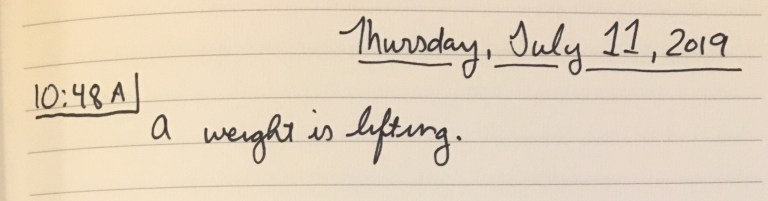 Thursday, July 11, 2019
10:48 A
a weight is lifting.